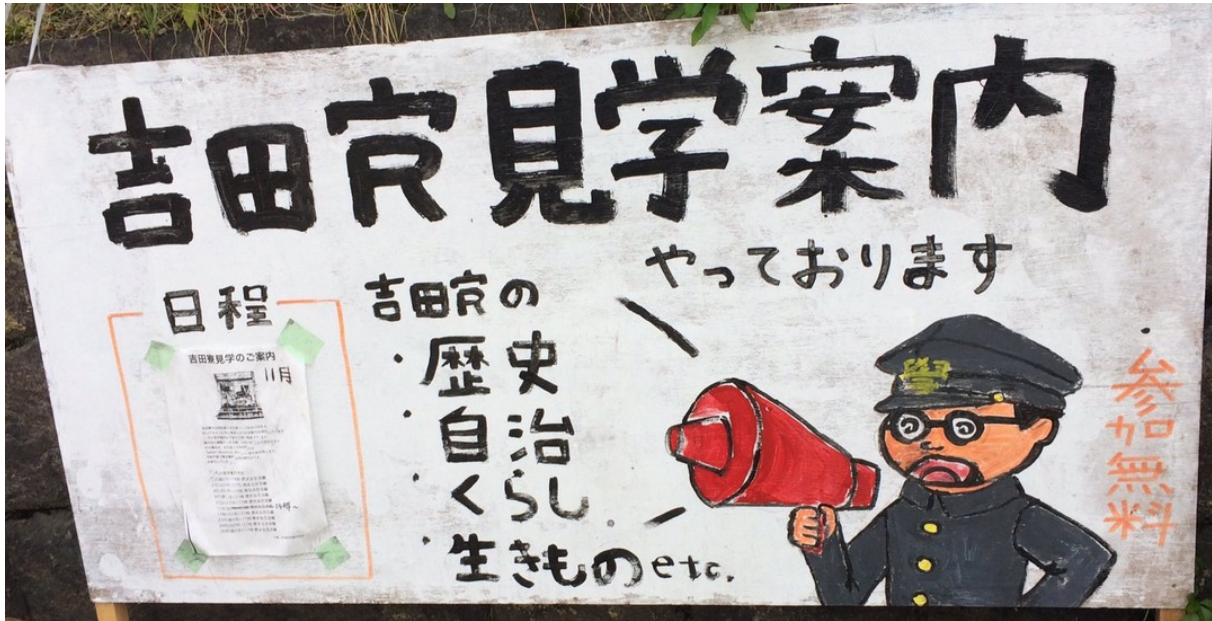 吉田寮見学案内
やっております
日程
吉田寮見学のご案内
11月
吉田寮の
・歴史
・自治
・くらし
・生きものetc.
學
参加無料